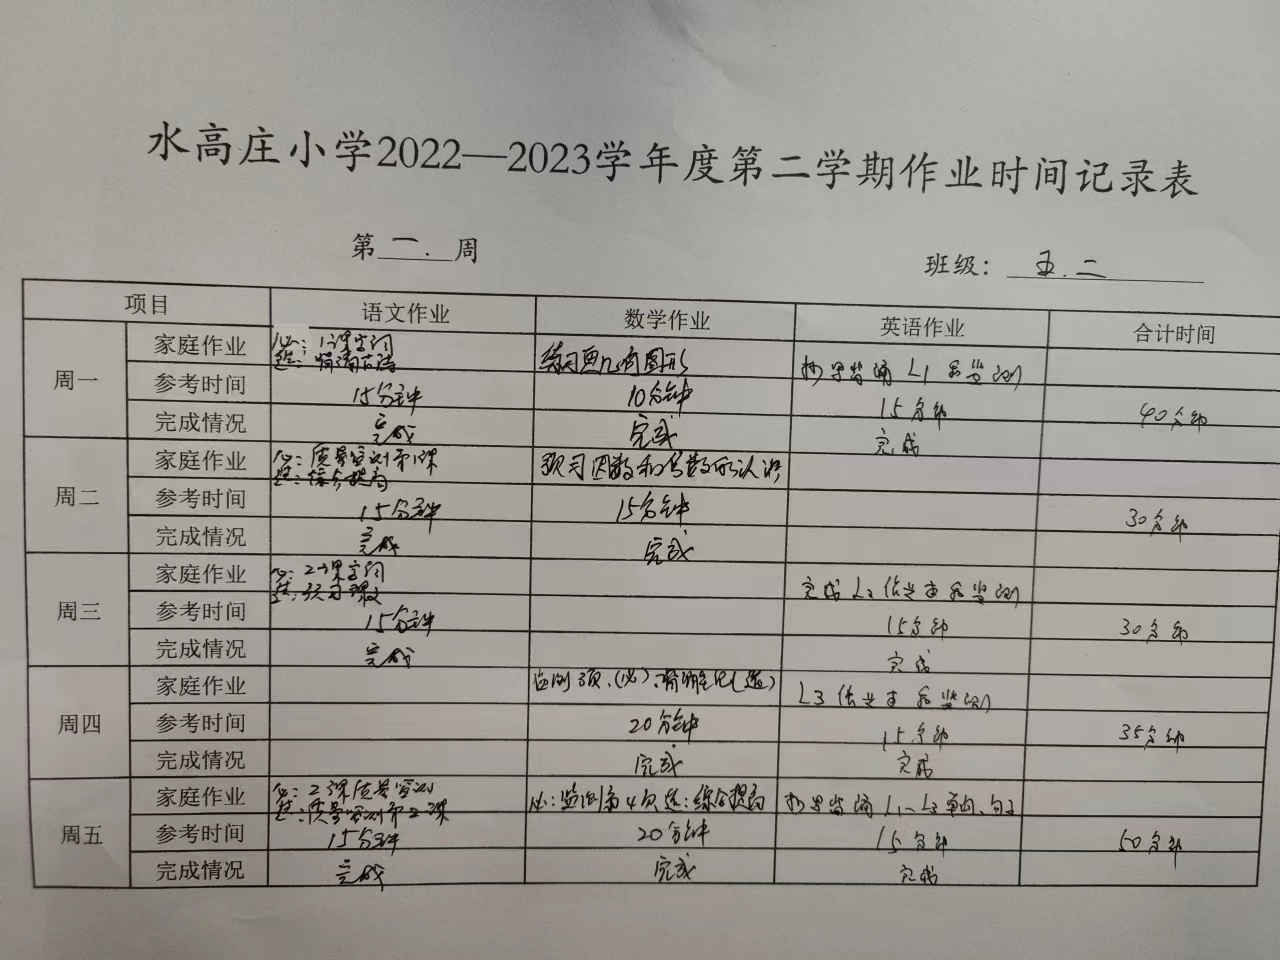 水高庄小学2022—2023学年度第二学期作业时间记录表
第 一. 周 班级: 五.二
项目 语文作业 数学作业 英语作业 合计时间
周一
家庭作业 必:1课字词 练习画几何图形 抄写背诵L1和监测
选:背诵古诗
参考时间 15分钟 10分钟 15分钟 40分钟
完成情况 完成 完成 完成
周二
家庭作业 必:质量监测第1课 预习因数和倍数的认识
选:综合提高
参考时间 15分钟 15分钟 30分钟
完成情况 完成 完成
周三
家庭作业 必:2课字词 完成L2作业本和监测
选:预习课文
参考时间 15分钟 15分钟 30分钟
完成情况 完成 完成
周四
家庭作业 监测3页.(必) (选) L3作业本和监测
参考时间 20分钟 15分钟 35分钟
完成情况 完成 完成
周五
家庭作业 必:2课质量监测 必:监测第4页 选:综合提高 抄写背诵L1-L3单词、句子
选:质量监测第2课
参考时间 15分钟 20分钟 15分钟 50分钟
完成情况 完成 完成 完成